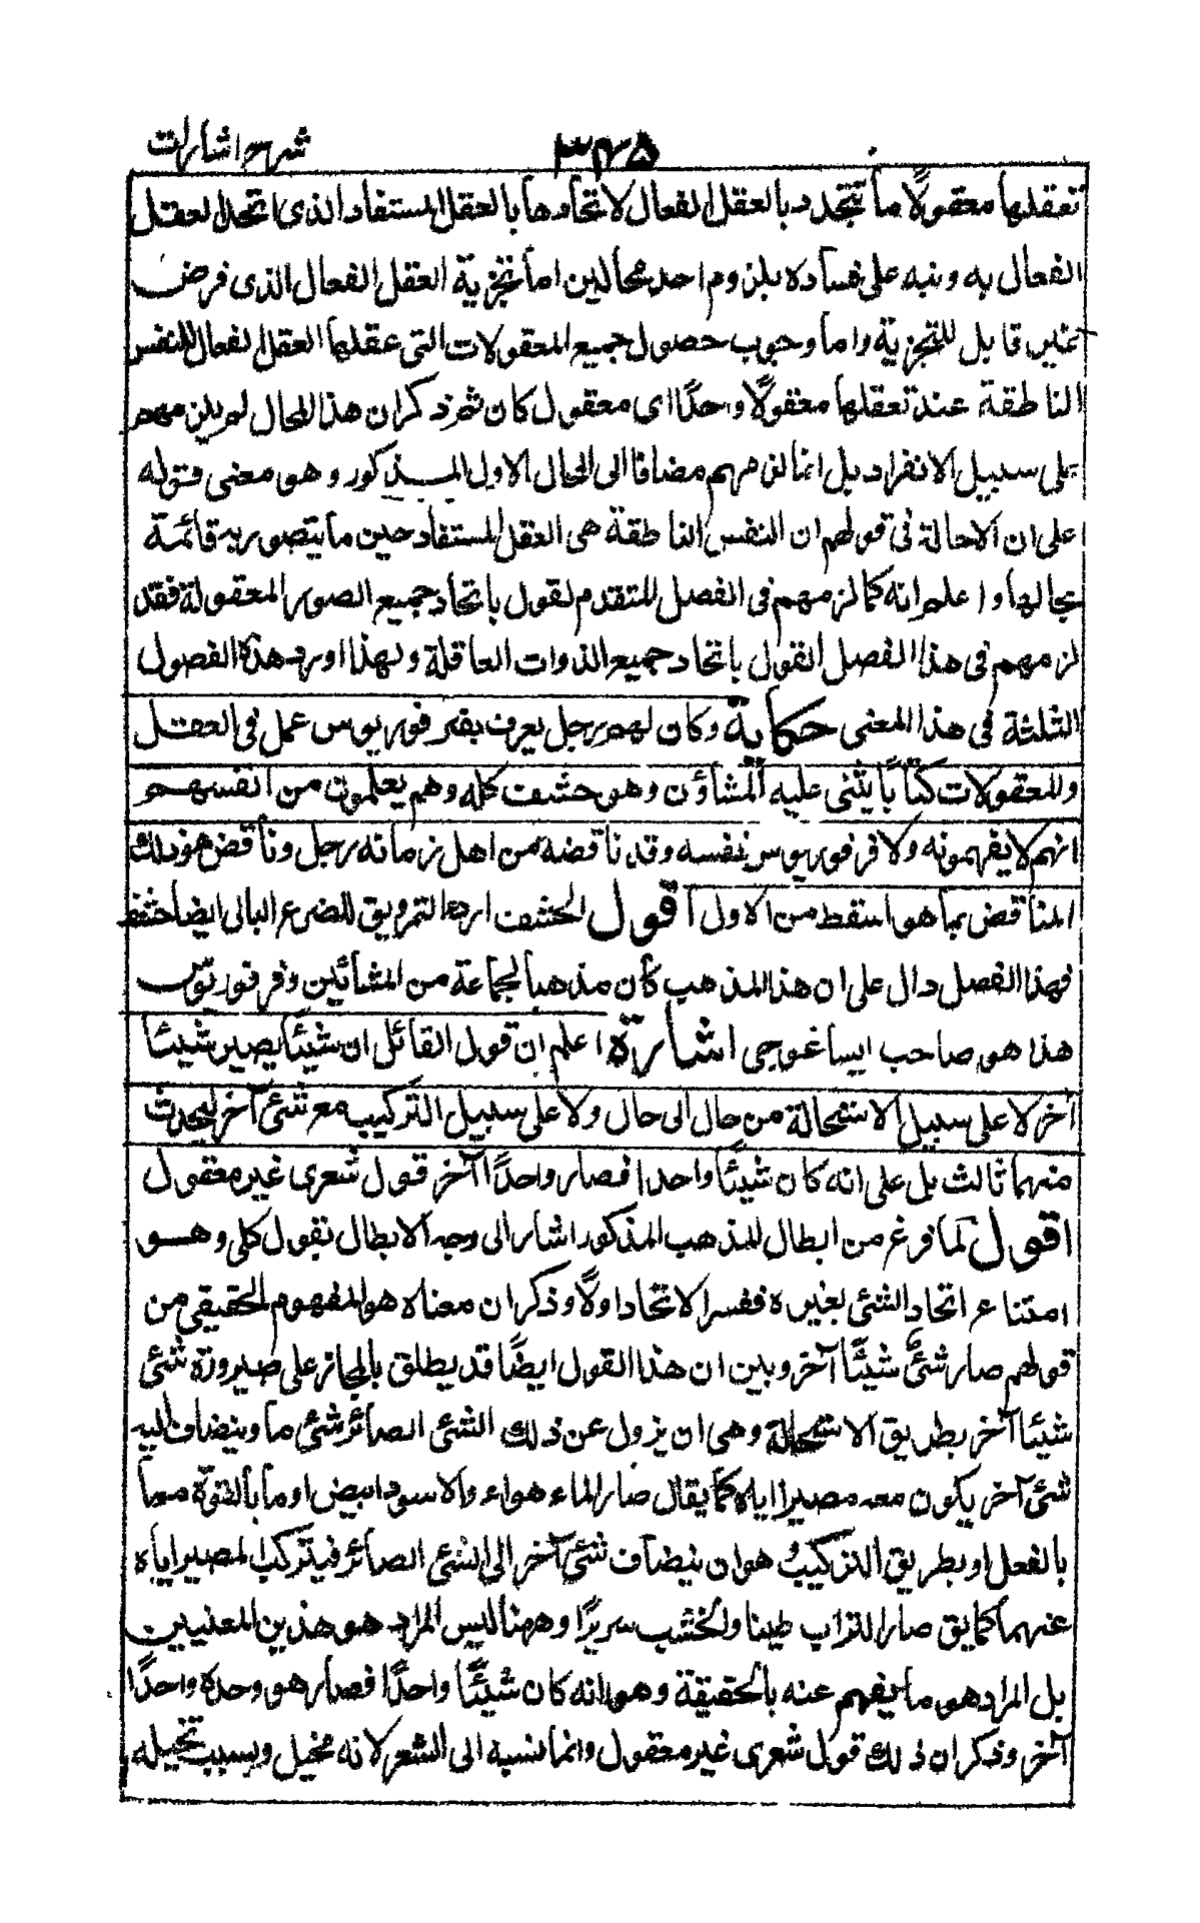 شرح اشارات
۳۴۵
تعقلها معقولًا ما تتحد بالعقل الفعال لاتحادها بالعقل المستفاد الذى اتحد العقل
الفعال به ونبه على فساده بلزوم احد محالين اما تجزية العقل الفعال الذى فرض
غير قابل للتجزية واما وجوب حصول جميع المعقولات التى عقلها العقل الفعال للنفس
الناطقة عند تعقلها معقولًا واحدًا اى معقول كان ثم ذكر ان هذا المحال لم يلزمهم
على سبيل الانفراد بل انما لزمهم مضافا الى المحال الاول المذكور وهو معنى قوله
على ان الاحالة فى قولهم ان النفس الناطقة هى العقل المستفاد حين ما يتصور به قائمة
بحالها واعلم انه كما لزمهم فى الفصل المتقدم القول باتحاد جميع الصور المعقولة فقد
لزمهم فى هذا الفصل القول باتحاد جميع الذوات العاقلة ولهذا اورد هذه الفصول
الثلثة فى هذا المعنى حكاية وكان لهم رجل يعرف بفرفوريوس عمل فى العقل
والمعقولات كتابًا يثنى عليه المشاؤن وهو حشف كله وهم يعلمون من انفسهم
انهم لا يفهمونه ولا فرفوريوس نفسه وقد ناقضه من اهل زمانه رجل وناقض هو ذلك
المناقض بما هو اسقط من الاول اقول الحشف اردا التمر ويق للضرع البالى ايضا حشف
فهذا الفصل دال على ان هذا المذهب كان مذهبا لجماعة من المشائين وفرفوريوس
هذا هو صاحب ايساغوجى اشارة اعلم ان قول القائل ان شيئًا يصير شيئًا
آخر لا على سبيل الاستحالة من حال الى حال ولا على سبيل التركيب مع شئ آخر ليحدث
منهما ثالث بل على انه كان شيئًا واحدا فصار واحدًا آخر قول شعرى غير معقول
اقول لما فرغ من ابطال المذهب المذكور اشار الى وجه الابطال بقول كلى وهو
امتناع اتحاد الشئ بغيره ففسر الاتحاد اولًا وذكر ان معناه هو المفهوم الحقيقى من
قولهم صار شئٌ شيئًا آخر وبين ان هذا القول ايضًا قد يطلق بالمجاز على صيرورة شئ
شيئًا آخر بطريق الاستحالة وهى ان يزول عن ذلك الشئ الصائر شئ ما وينضاف اليه
شئ آخر يكون معه مصيرا اياه كما يقال صار الماء هواء والاسود ابيض او ما بالقوة معا
بالفعل او بطريق التركيب وهو ان ينضاف شئ آخر الى الشئ الصائر فيتركب المصير اياه
عنهما كما يق صار التراب طينا والخشب سريرًا وههنا ليس المراد هو هذين المعنيين
بل المراد هو ما يفهم عنه بالحقيقة وهو انه كان شيئًا واحدًا فصار هو وحده واحدًا
آخر وذكر ان ذلك قول شعرى غير معقول وانما نسبه الى الشعر لانه مخيل وبسبب تخييله